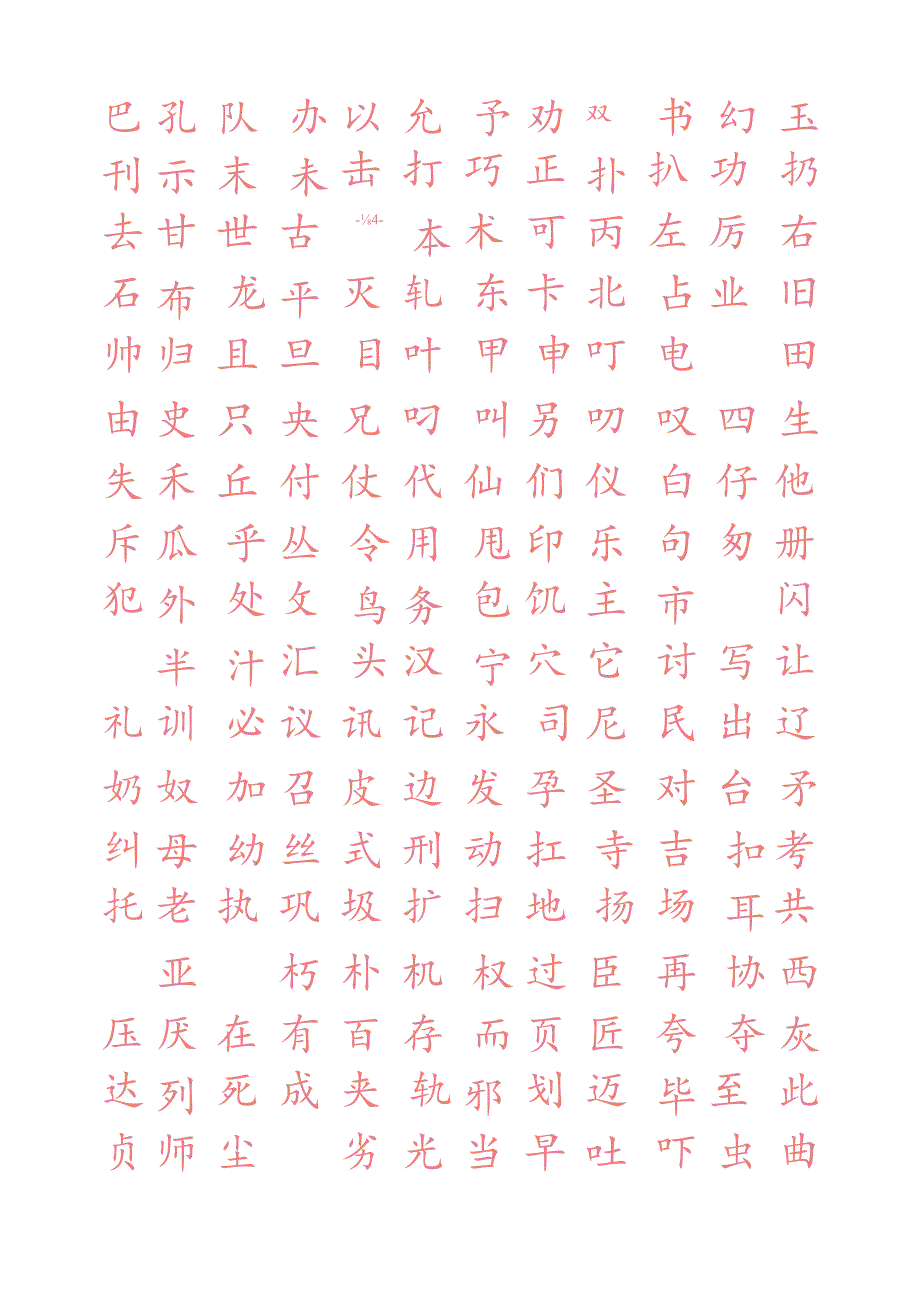 巴 孔 队 办 以 允 予 劝 双 书 幻 玉
刊 示 末 未 击 打 巧 正 扑 扒 功 扔
去 甘 世 古 -⅛4- 本 术 可 丙 左 厉 右
石 布 龙 平 灭 轧 东 卡 北 占 业 旧
帅 归 且 旦 目 叶 甲 申 叮 电 田
由 史 只 央 兄 叼 叫 另 叨 叹 四 生
失 禾 丘 付 仗 代 仙 们 仪 白 仔 他
斥 瓜 乎 丛 令 用 甩 印 乐 句 匆 册
犯 外 处 攵 鸟 务 包 饥 主 市 闪
半 汁 汇 头 汉 宁 穴 它 讨 写 让
礼 训 必 议 讯 记 永 司 尼 民 出 辽
奶 奴 加 召 皮 边 发 孕 圣 对 台 矛
纠 母 幼 丝 式 刑 动 扛 寺 吉 扣 考
托 老 执 巩 圾 扩 扫 地 扬 场 耳 共
亚 朽 朴 机 权 过 臣 再 协 西
压 厌 在 有 百 存 而 页 匠 夸 夺 灰
达 列 死 成 夹 轨 邪 划 迈 毕 至 此
贞 师 尘 劣 光 当 早 吐 吓 虫 曲